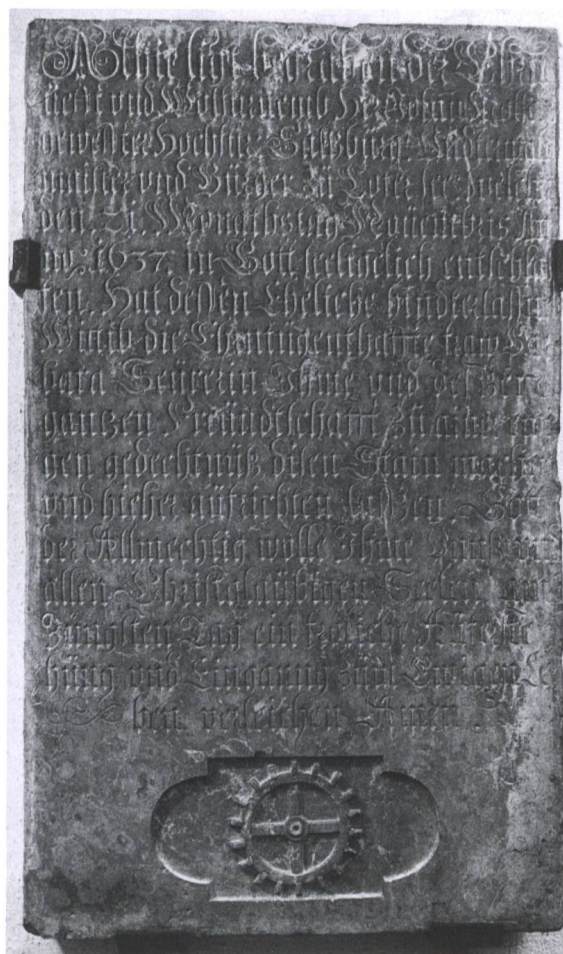 Alhie ligt begraben der Ehrn
uest vnd Wolfürnemb Herr
gewester Hochfür: Salzburg:
maister vnd Burger zu welcher
den 21. Monatstag Nouembris An
no: 1637. in Gott seeligclich entschla
fen. Hat dessen Eheliche hinderlassne
Wittib die Ehrntugenthaffte fraw Bar
bara Ihme vnd dessen
ganzen Freündtschafft zu
gen gedechtnüß disen Stain machen
vnd hieher aufrichten lassen. Gott
der Allmechtig wolle Ihme vnd
allen Christglaubigen Seelen am
Jüngsten Tag ein froliche Aufferste
hung vnd Eingang zum Ewigen Le
ben verleichen Amen